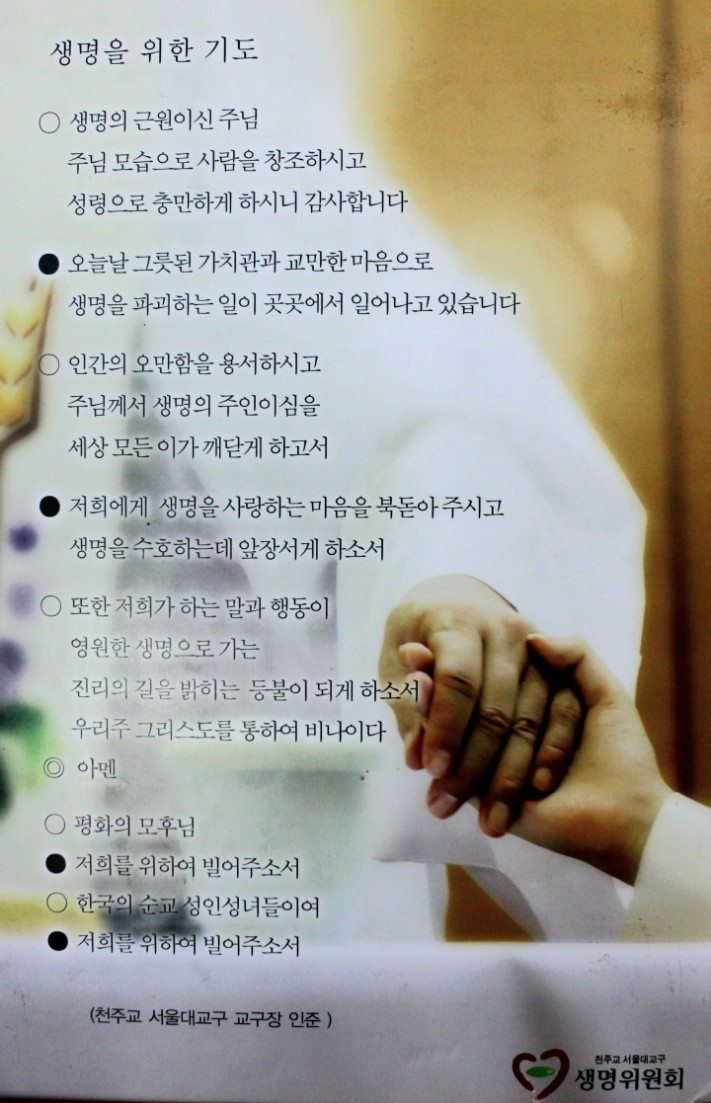 생명을 위한 기도
○ 생명의 근원이신 주님
주님 모습으로 사람을 창조하시고
성령으로 충만하게 하시니 감사합니다
● 오늘날 그릇된 가치관과 교만한 마음으로
생명을 파괴하는 일이 곳곳에서 일어나고 있습니다
○ 인간의 오만함을 용서하시고
주님께서 생명의 주인이심을
세상 모든 이가 깨닫게 하고서
● 저희에게 생명을 사랑하는 마음을 북돋아 주시고
생명을 수호하는데 앞장서게 하소서
○ 또한 저희가 하는 말과 행동이
영원한 생명으로 가는
진리의 길을 밝히는 등불이 되게 하소서
우리주 그리스도를 통하여 비나이다
◎ 아멘
○ 평화의 모후님
● 저희를 위하여 빌어주소서
○ 한국의 순교 성인성녀들이여
● 저희를 위하여 빌어주소서
(천주교 서울대교구 교구장 인준 )
천주교 서울대교구
생명위원회